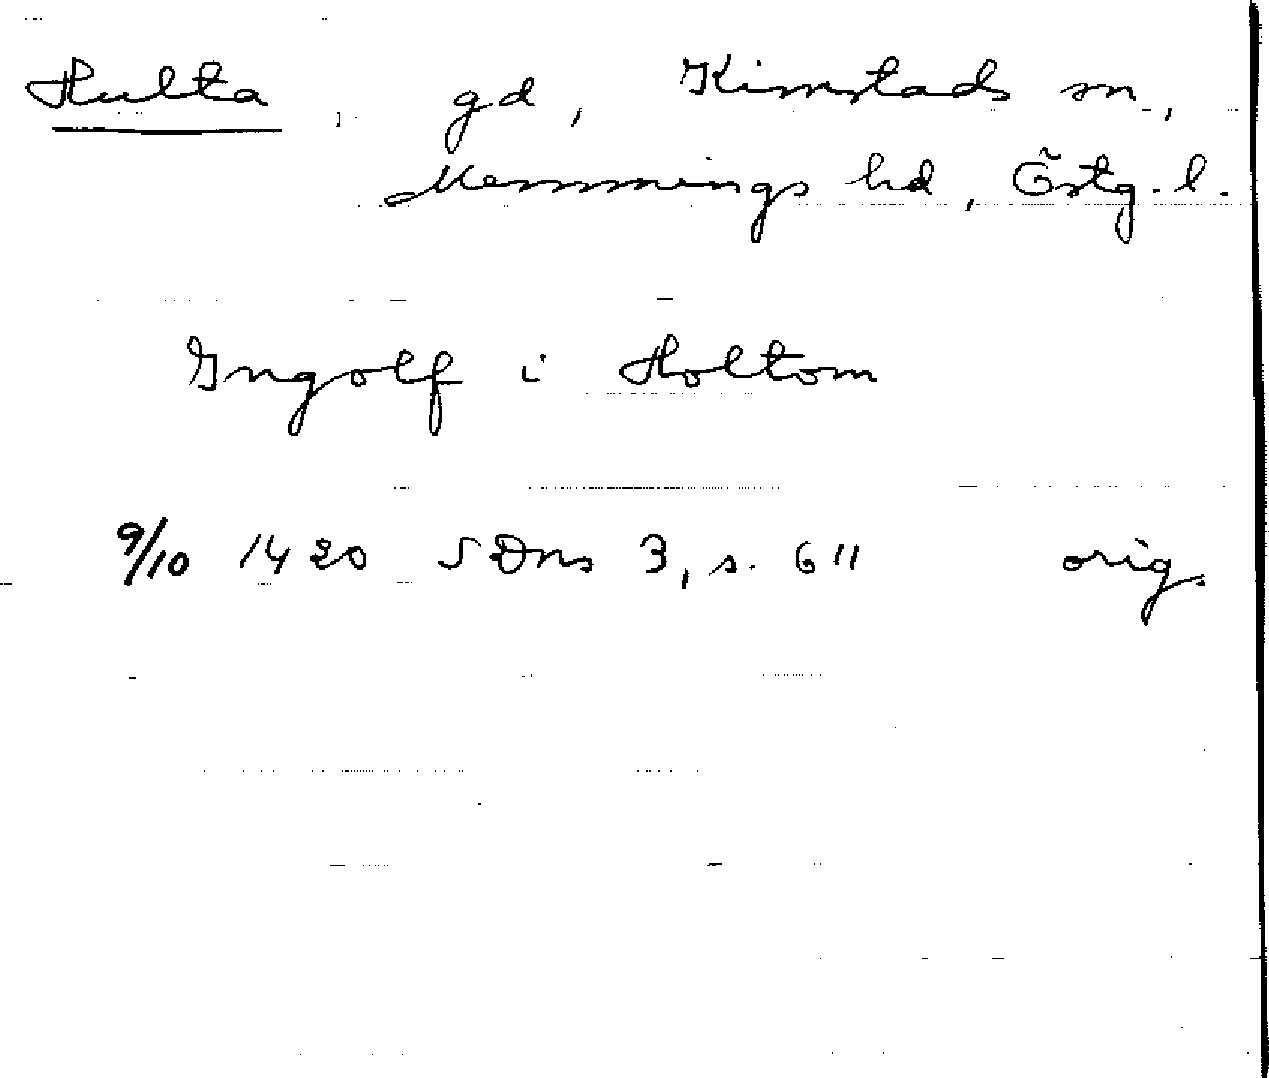 Hulta, gd, Kimstads sn,
Memmings hd, Östg. l.
Ingolf i Holtom
9/10 1420 SDns 3, s. 611 orig.